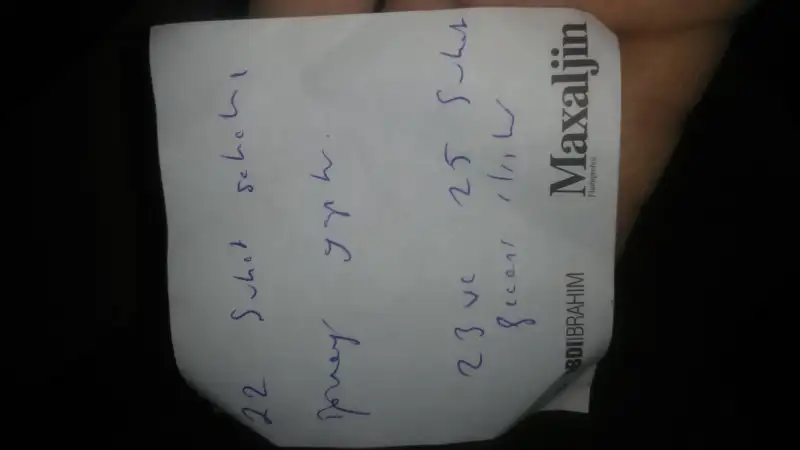 22 Şubat sabahı
Bonney yaptı.
23 ve 25 Şubat
gecesi ilişki
Maxaljin
Flurbiprofen
BDIIBRAHIM